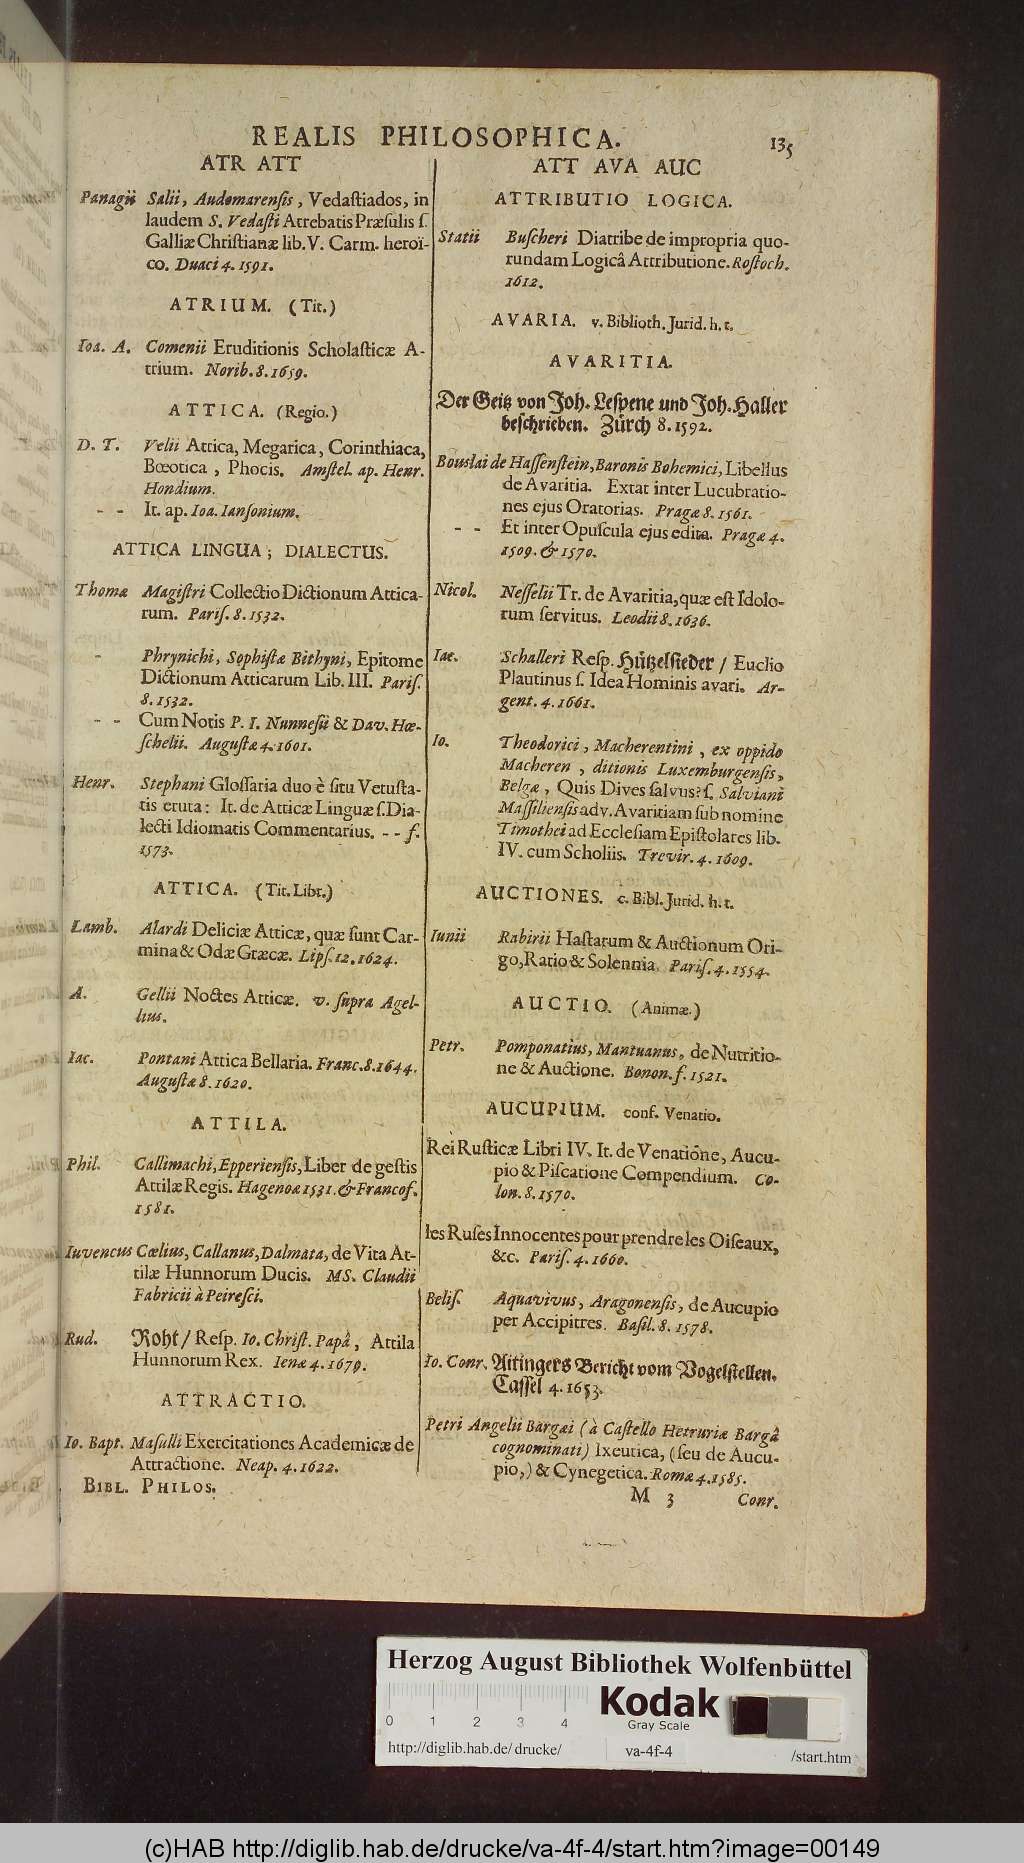 REALIS PHILOSOPHICA.
135
ATR ATT
Panagii Salii, Audomarensis, Vedastiados, in
laudem S. Vedasti Atrebatis Præsulis ſ.
Galliæ Christianæ lib. V. Carm. heroï-
co. Duaci 4. 1591.
ATRIUM. (Tit.)
Ioa. A. Comenii Eruditionis Scholasticæ A-
trium. Norib. 8. 1659.
ATTICA. (Regio.)
D. T. Velii Attica, Megarica, Corinthiaca,
Bœotica, Phocis. Amstel. ap. Henr.
Hondium.
- - It. ap. Ioa. Iansonium.
ATTICA LINGUA; DIALECTUS.
Thomæ Magistri Collectio Dictionum Attica-
rum. Pariſ. 8. 1532.
- Phrynichi, Sophistæ Bithyni, Epitome
Dictionum Atticarum Lib. III. Pariſ.
8. 1532.
- - Cum Notis P. I. Nunnesii & Dav. Hœ-
ſchelii. Augustæ 4. 1601.
Henr. Stephani Gloſſaria duo è ſitu Vetuſta-
tis eruta: It. de Atticæ Linguæ ſ. Dia-
lecti Idiomatis Commentarius. - - f.
1573.
ATTICA. (Tit. Libr.)
Lamb. Alardi Deliciæ Atticæ, quæ ſunt Car-
mina & Odæ Græcæ. Lipſ. 12. 1624.
A. Gellii Noctes Atticæ. v. ſupra Agel-
lius.
Iac. Pontani Attica Bellaria. Franc. 8. 1644.
Augustæ 8. 1620.
ATTILA.
Phil. Callimachi, Epperiensis, Liber de gestis
Attilæ Regis. Hagenoæ 1531. & Francof.
1581.
Iuvencus Cœlius, Callanus, Dalmata, de Vita At-
tilæ Hunnorum Ducis. MS. Claudii
Fabricii à Peiresci.
Rud. Roht / Reſp. Io. Christ. Papâ, Attila
Hunnorum Rex. Ienæ 4. 1679.
ATTRACTIO.
Io. Bapt. Masulli Exercitationes Academicæ de
Attractione. Neap. 4. 1622.
BIBL. PHILOS.
ATT AVA AUC
ATTRIBUTIO LOGICA.
Statii Buſcheri Diatribe de impropria quo-
rundam Logicâ Attributione. Rostoch.
1612.
AVARIA. v. Biblioth. Jurid. h. t.
AVARITIA.
Der Geitz von Joh. Leſpene und Joh. Haller
beſchrieben. Zürch 8. 1592.
Bouslai de Haſſenstein, Baronis Bohemici, Libellus
de Avaritia. Extat inter Lucubratio-
nes ejus Oratorias. Pragæ 8. 1561.
- - Et inter Opuſcula ejus edita. Pragæ 4.
1509. & 1570.
Nicol. Neſſelii Tr. de Avaritia, quæ est Idolo-
rum ſervitus. Leodii 8. 1636.
Iac. Schalleri Reſp. Hützelſieder / Euclio
Plautinus ſ. Idea Hominis avari. Ar-
gent. 4. 1661.
Io. Theodorici, Macherentini, ex oppido
Macheren, ditionis Luxemburgensis,
Belgæ, Quis Dives ſalvus? ſ. Salviani
Maſſiliensis adv. Avaritiam ſub nomine
Timothei ad Ecclesiam Epistolares lib.
IV. cum Scholiis. Trevir. 4. 1609.
AUCTIONES. c. Bibl. Jurid. h. t.
Iunii Rabirii Hastarum & Auctionum Ori-
go, Ratio & Solennia. Pariſ. 4. 1554.
AUCTIO. (Animæ.)
Petr. Pomponatius, Mantuanus, de Nutritio-
ne & Auctione. Bonon. f. 1521.
AUCUPIUM. conf. Venatio.
Rei Rusticæ Libri IV. It. de Venatione, Aucu-
pio & Piſcatione Compendium. Co-
lon. 8. 1570.
les Ruſes Innocentes pour prendre les Oiſeaux,
&c. Pariſ. 4. 1660.
Beliſ. Aquavivus, Aragonensis, de Aucupio
per Accipitres. Basil. 8. 1578.
Io. Conr. Aitingers Bericht vom Vogelſtellen.
Caſſel 4. 1653.
Petri Angelii Bargæi (à Castello Hetruriæ Bargâ
cognominati) Ixeutica, (ſeu de Aucu-
pio,) & Cynegetica. Romæ 4. 1585.
M 3 Conr.
Herzog August Bibliothek Wolfenbüttel
0 1 2 3 4
Kodak
Gray Scale
http://diglib.hab.de/drucke/ va-4f-4 /start.htm
(c)HAB http://diglib.hab.de/drucke/va-4f-4/start.htm?image=00149